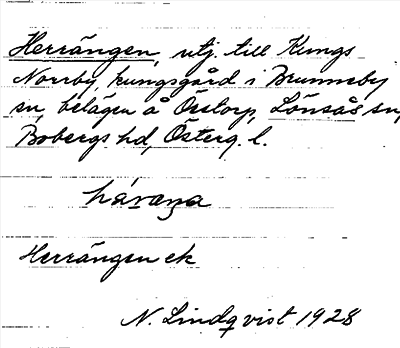 Herrängen, utj. till Kungs
Norrby, kungsgård i Brunneby
sn, belägen å Östorp, Lönsås sn,
Bobergs hd, Österg. l.
Herrängen ek
N. Lindqvist 1928